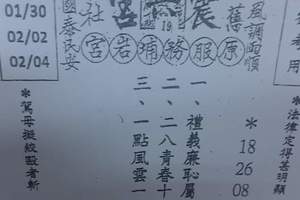 01/30
02/02
02/04
風調雨順
舊
宮
社
國泰民安
原服務埔岩宮
考用
*法律定得甚明顯
*
18
26
08
一、禮義廉恥屬
二、二八青春十
三、一點風雲一
*罵母擬絞毆者斬